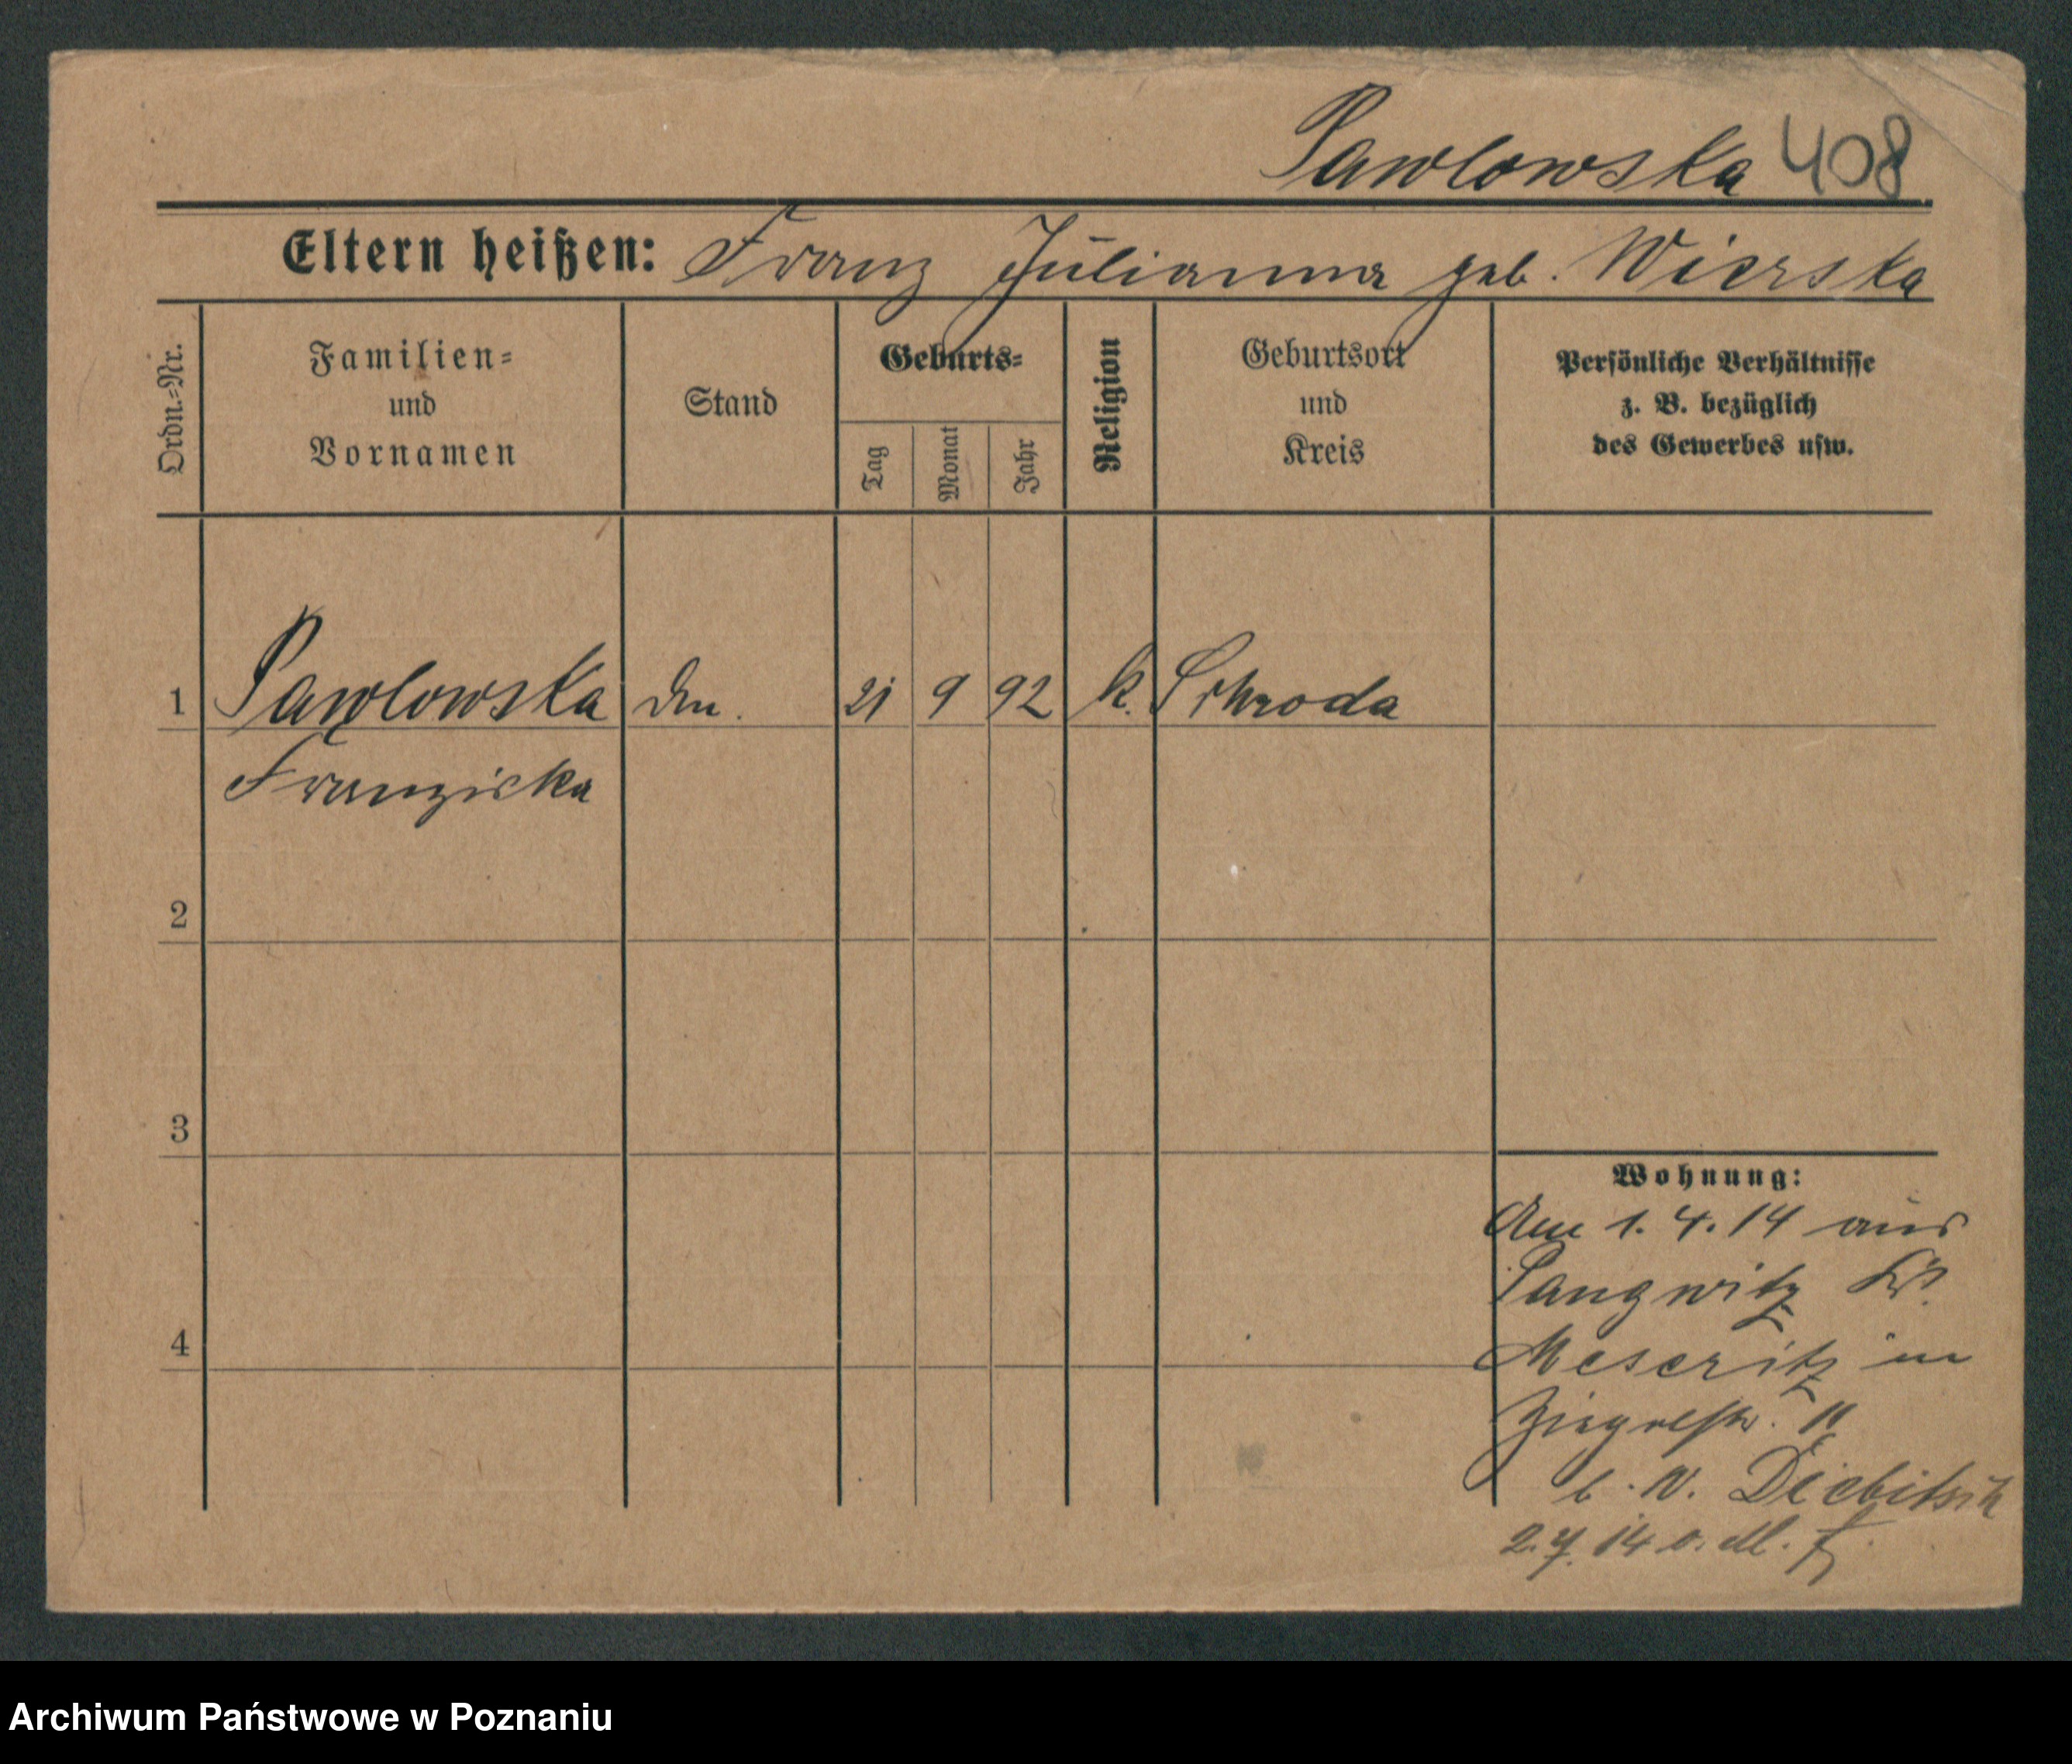 Pawlowska 408
Eltern heißen: Franz Julianna geb. Wierska
Ordn.=Nr.
Familien=
und
Vornamen
Stand
Geburts=
Tag
Monat
Jahr
Religion
Geburtsort
und
Kreis
Persönliche Verhältnisse
z. B. bezüglich
des Gewerbes usw.
1 Pawlowska 21 9 92 k. Schroda
Franziska
2
3
4
Wohnung:
Am 1. 4. 14 aus
Meseritz in
Ziegelstr. 11
b.
14 o. M.
Archiwum Państwowe w Poznaniu